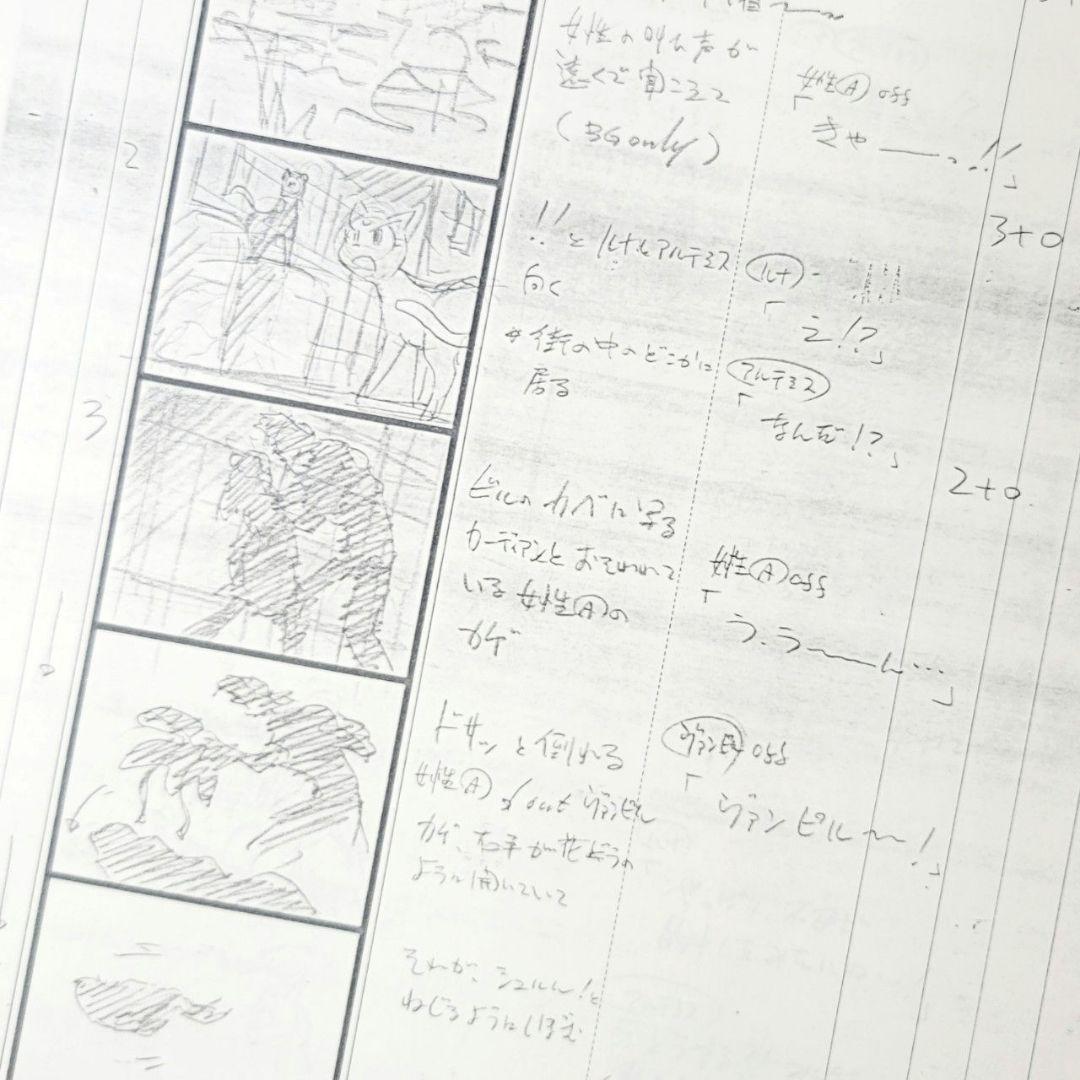 女性の叫ぶ声が
遠くで聞こえて
(BG only)
女性Ⓐ off
「きゃ――っ!!」
3+0
2
!!とルナとアルテミス
向く
*街の中のどこかに
居る
ルナ
「え!?」
アルテミス
「なんだ!?」
2+0
3
ビルのカベに写る
カーディアンとおそわれて
いる女性Ⓐの
カゲ
女性Ⓐ off
「う、う~~ん…」
ドサッと倒れる
女性Ⓐ f/out ヴァンピル
カゲ、右手が花びらの
ように開いていて
ヴァンピル off
「ヴァンピル~~!」
それが、シュルルン!と
ねじるように